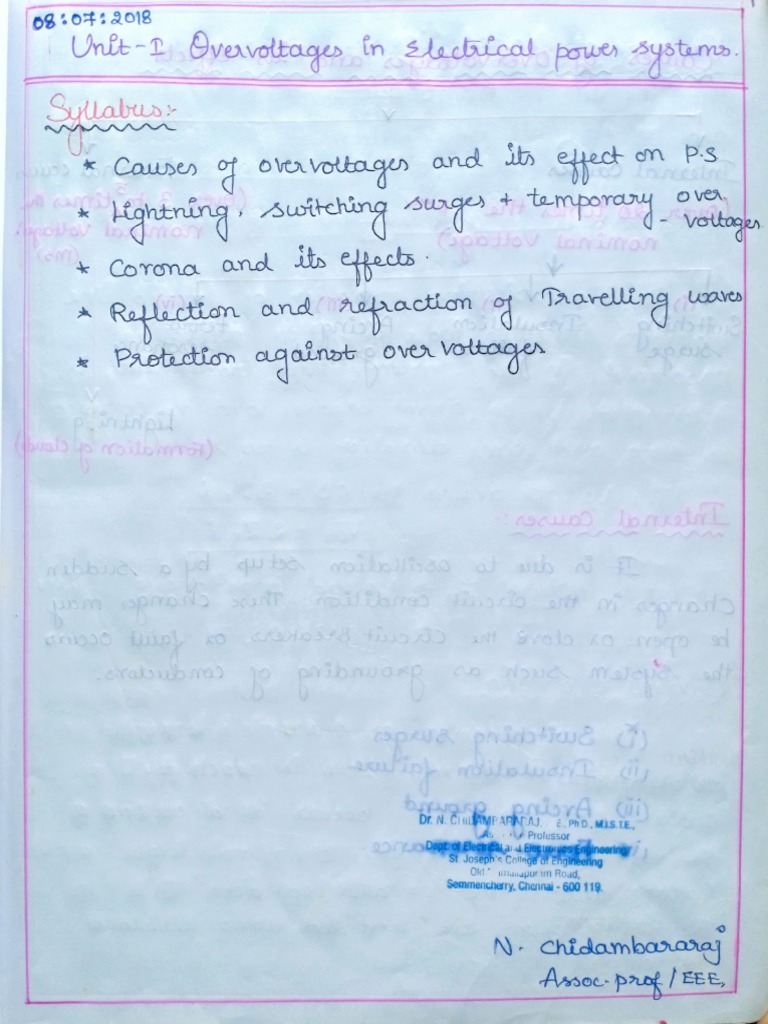 08:07:2018
Unit-I Overvoltages in Electrical power systems.
Syllabus:-
* Causes of overvoltages and its effect on P.S
* Lightning, switching surges + temporary over
- voltages
* Corona and its effects.
* Reflection and refraction of Travelling waves
* Protection against over voltages
Dr. N. CHIDAMBARARAJ, Ph.D., M.I.S.T.E.,
Professor
Dept. of Electrical and Electronics Engineering
St. Joseph's College of Engineering
Old Road,
Semmencherry, Chennai - 600 119.
N. Chidambararaj
Assoc-prof / EEE,